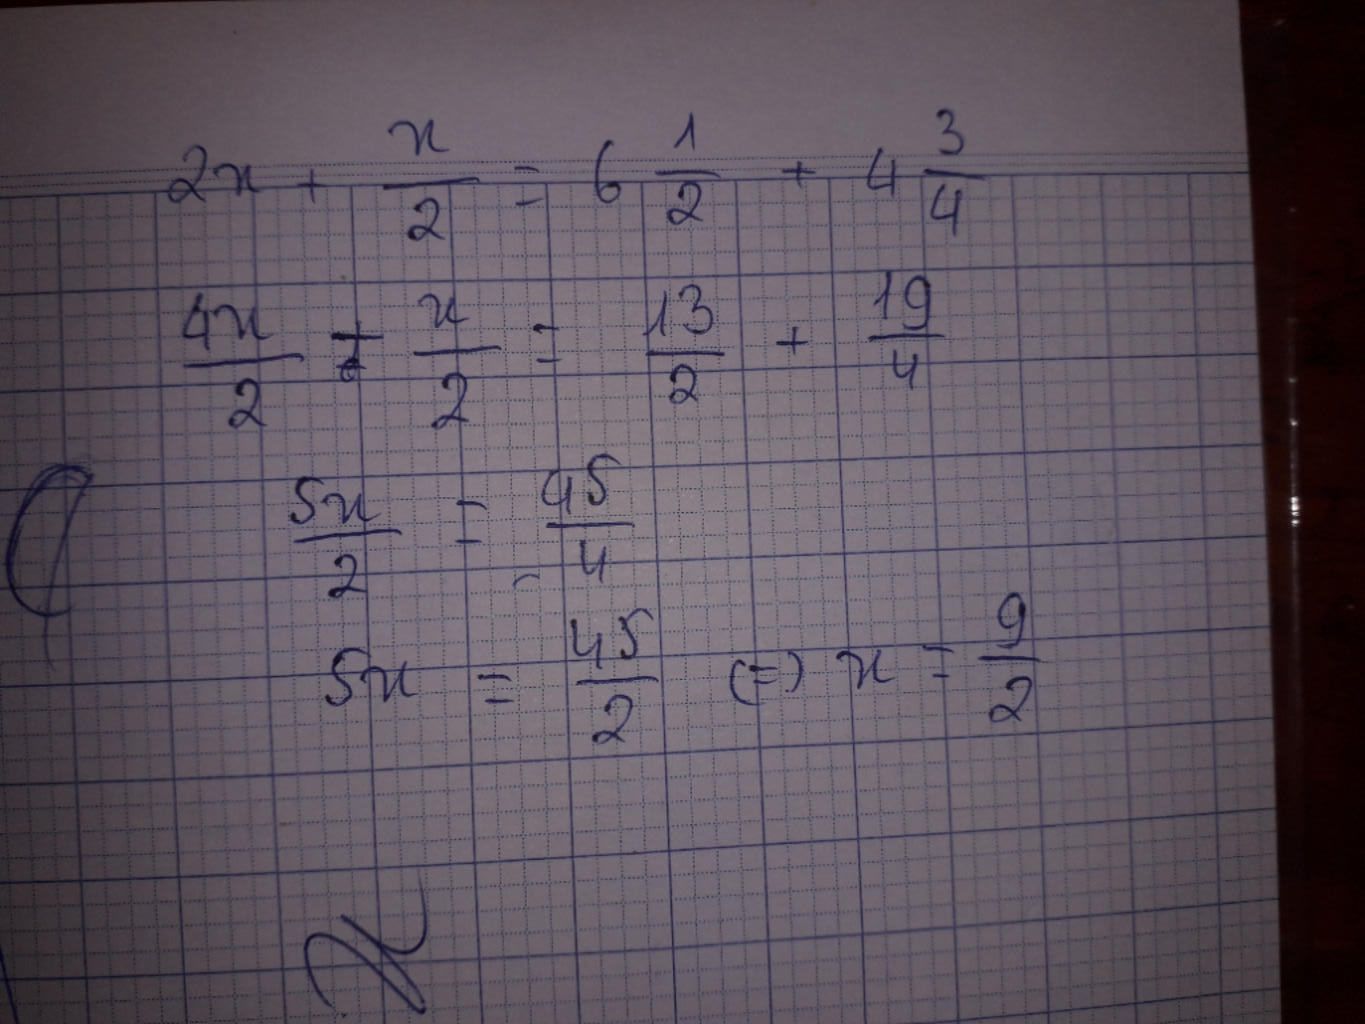 2x + x/2 = 6 1/2 + 4 3/4
4x/2 + x/2 = 13/2 + 19/4
5x/2 = 45/4
5x = 45/2 (=) x = 9/2